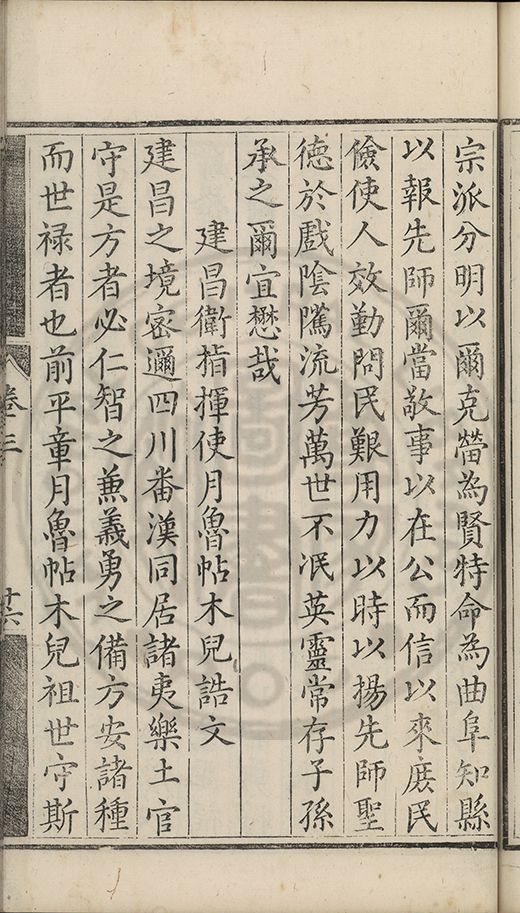 宗派分明以爾克㽦為賢特命為曲阜知縣
以報先師爾當敬事以在公而信以來庶民
儉使人效勤問民艱用力以時以揚先師聖
德於戲陰隲流芳萬世不泯英靈常存子孫
承之爾宜懋哉
建昌衛指揮使月魯帖木兒誥文
建昌之境密邇四川番漢同居諸夷樂土官
守是方者必仁智之兼義勇之備方安諸種
而世禄者也前平章月魯帖木兒祖世守斯
卷三
十六